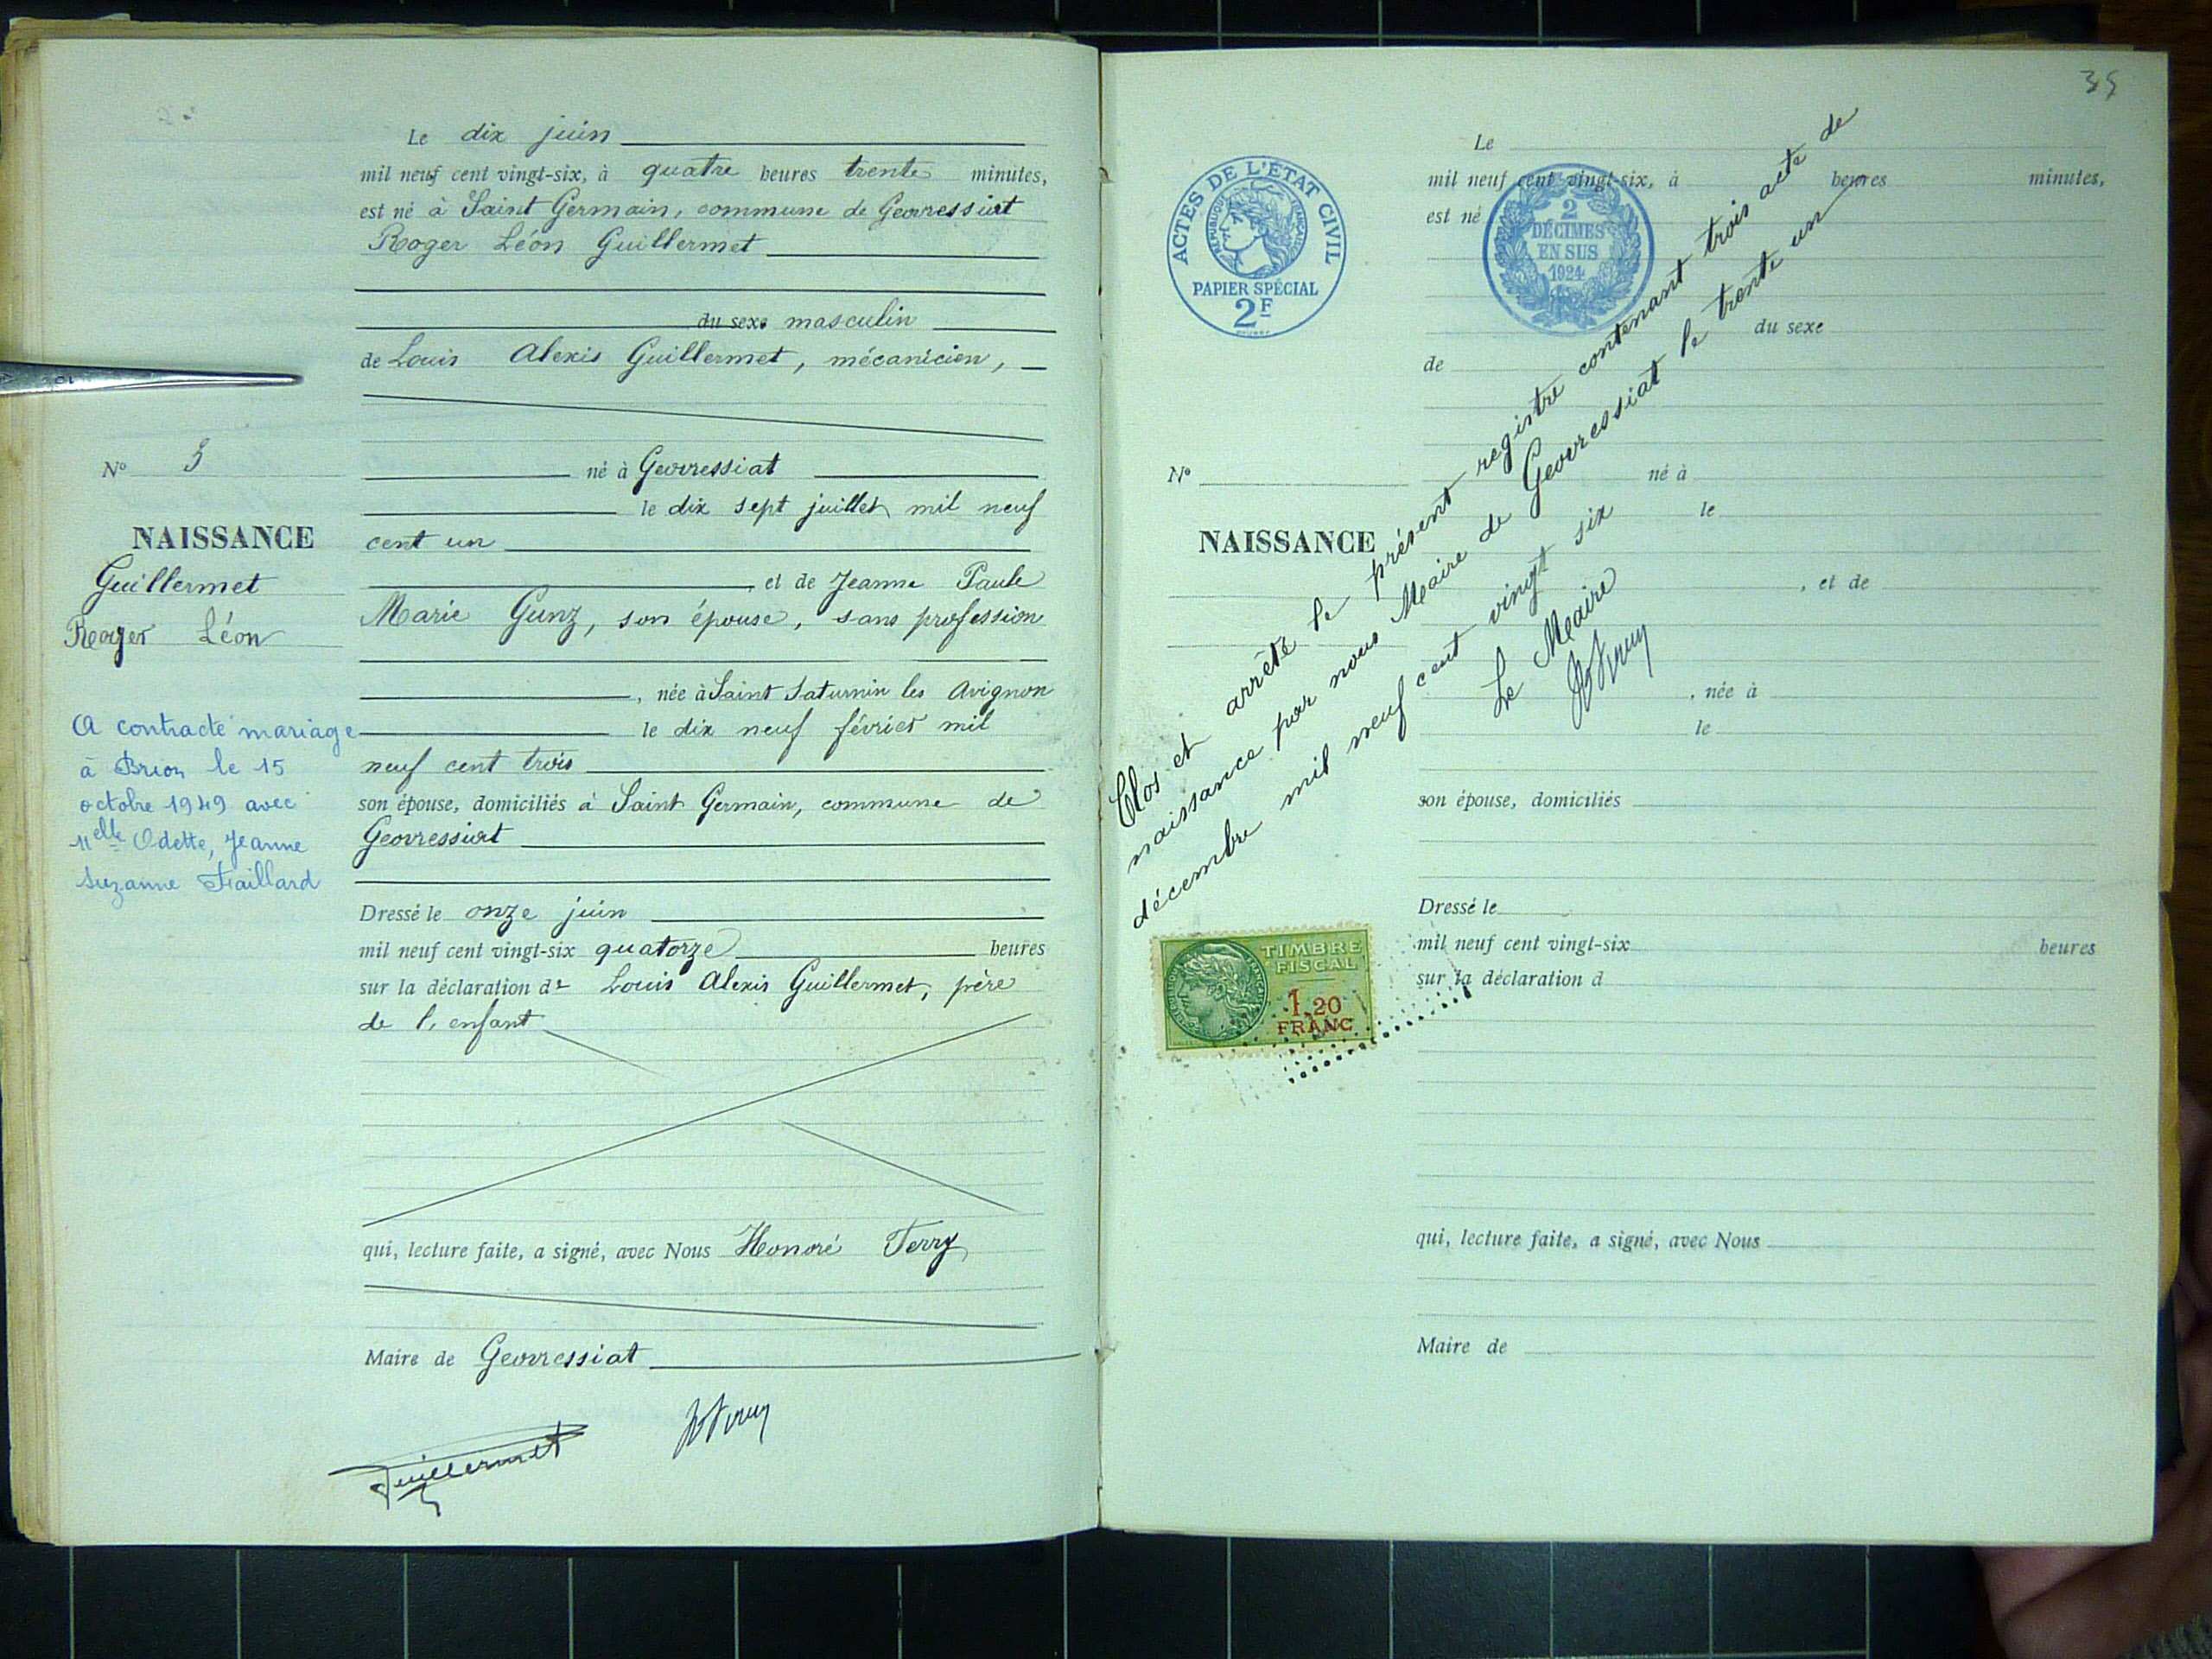 Le dix juin
mil neuf cent vingt-six, à quatre heures trente minutes,
est né à Saint Germain, commune de Geovressiat
Roger Léon Guillermet
du sexe masculin
de Louis Alexis Guillermet, mécanicien,
né à Geovressiat
le dix sept juillet mil neuf
cent un
, et de Jeanne Paule
Marie Gunz, son épouse, sans profession
, née à Saint Saturnin les Avignon
le dix neuf février mil
neuf cent trois
son épouse, domiciliés à Saint Germain, commune de
Geovressiat
Dressé le onze juin
mil neuf cent vingt-six quatorze heures
sur la déclaration de Louis Alexis Guillermet, père
de l'enfant
qui, lecture faite, a signé, avec Nous Honoré Ferry
Maire de Geovressiat
Guillermet
N° 3
NAISSANCE
Guillermet
Roger Léon
A contracté mariage
à Brion le 15
octobre 1949 avec
Melle Odette, Jeanne
Suzanne Faillard
35
ACTES DE L'ÉTAT CIVIL
RÉPUBLIQUE FRANÇAISE
PAPIER SPÉCIAL
2F
2
DÉCIMES
EN SUS
1924
Le
mil neuf cent vingt-six, à heures minutes,
est né
du sexe
de
N°
né à
le
NAISSANCE
, et de
, née à
le
son épouse, domiciliés
Dressé le
mil neuf cent vingt-six heures
sur la déclaration d
qui, lecture faite, a signé, avec Nous
Maire de
Clos et arrêté le présent registre contenant trois acte de
naissance par nous Maire de Geovressiat le trente un
décembre mil neuf cent vingt six
Le Maire
TIMBRE
FISCAL
1,20
FRANC